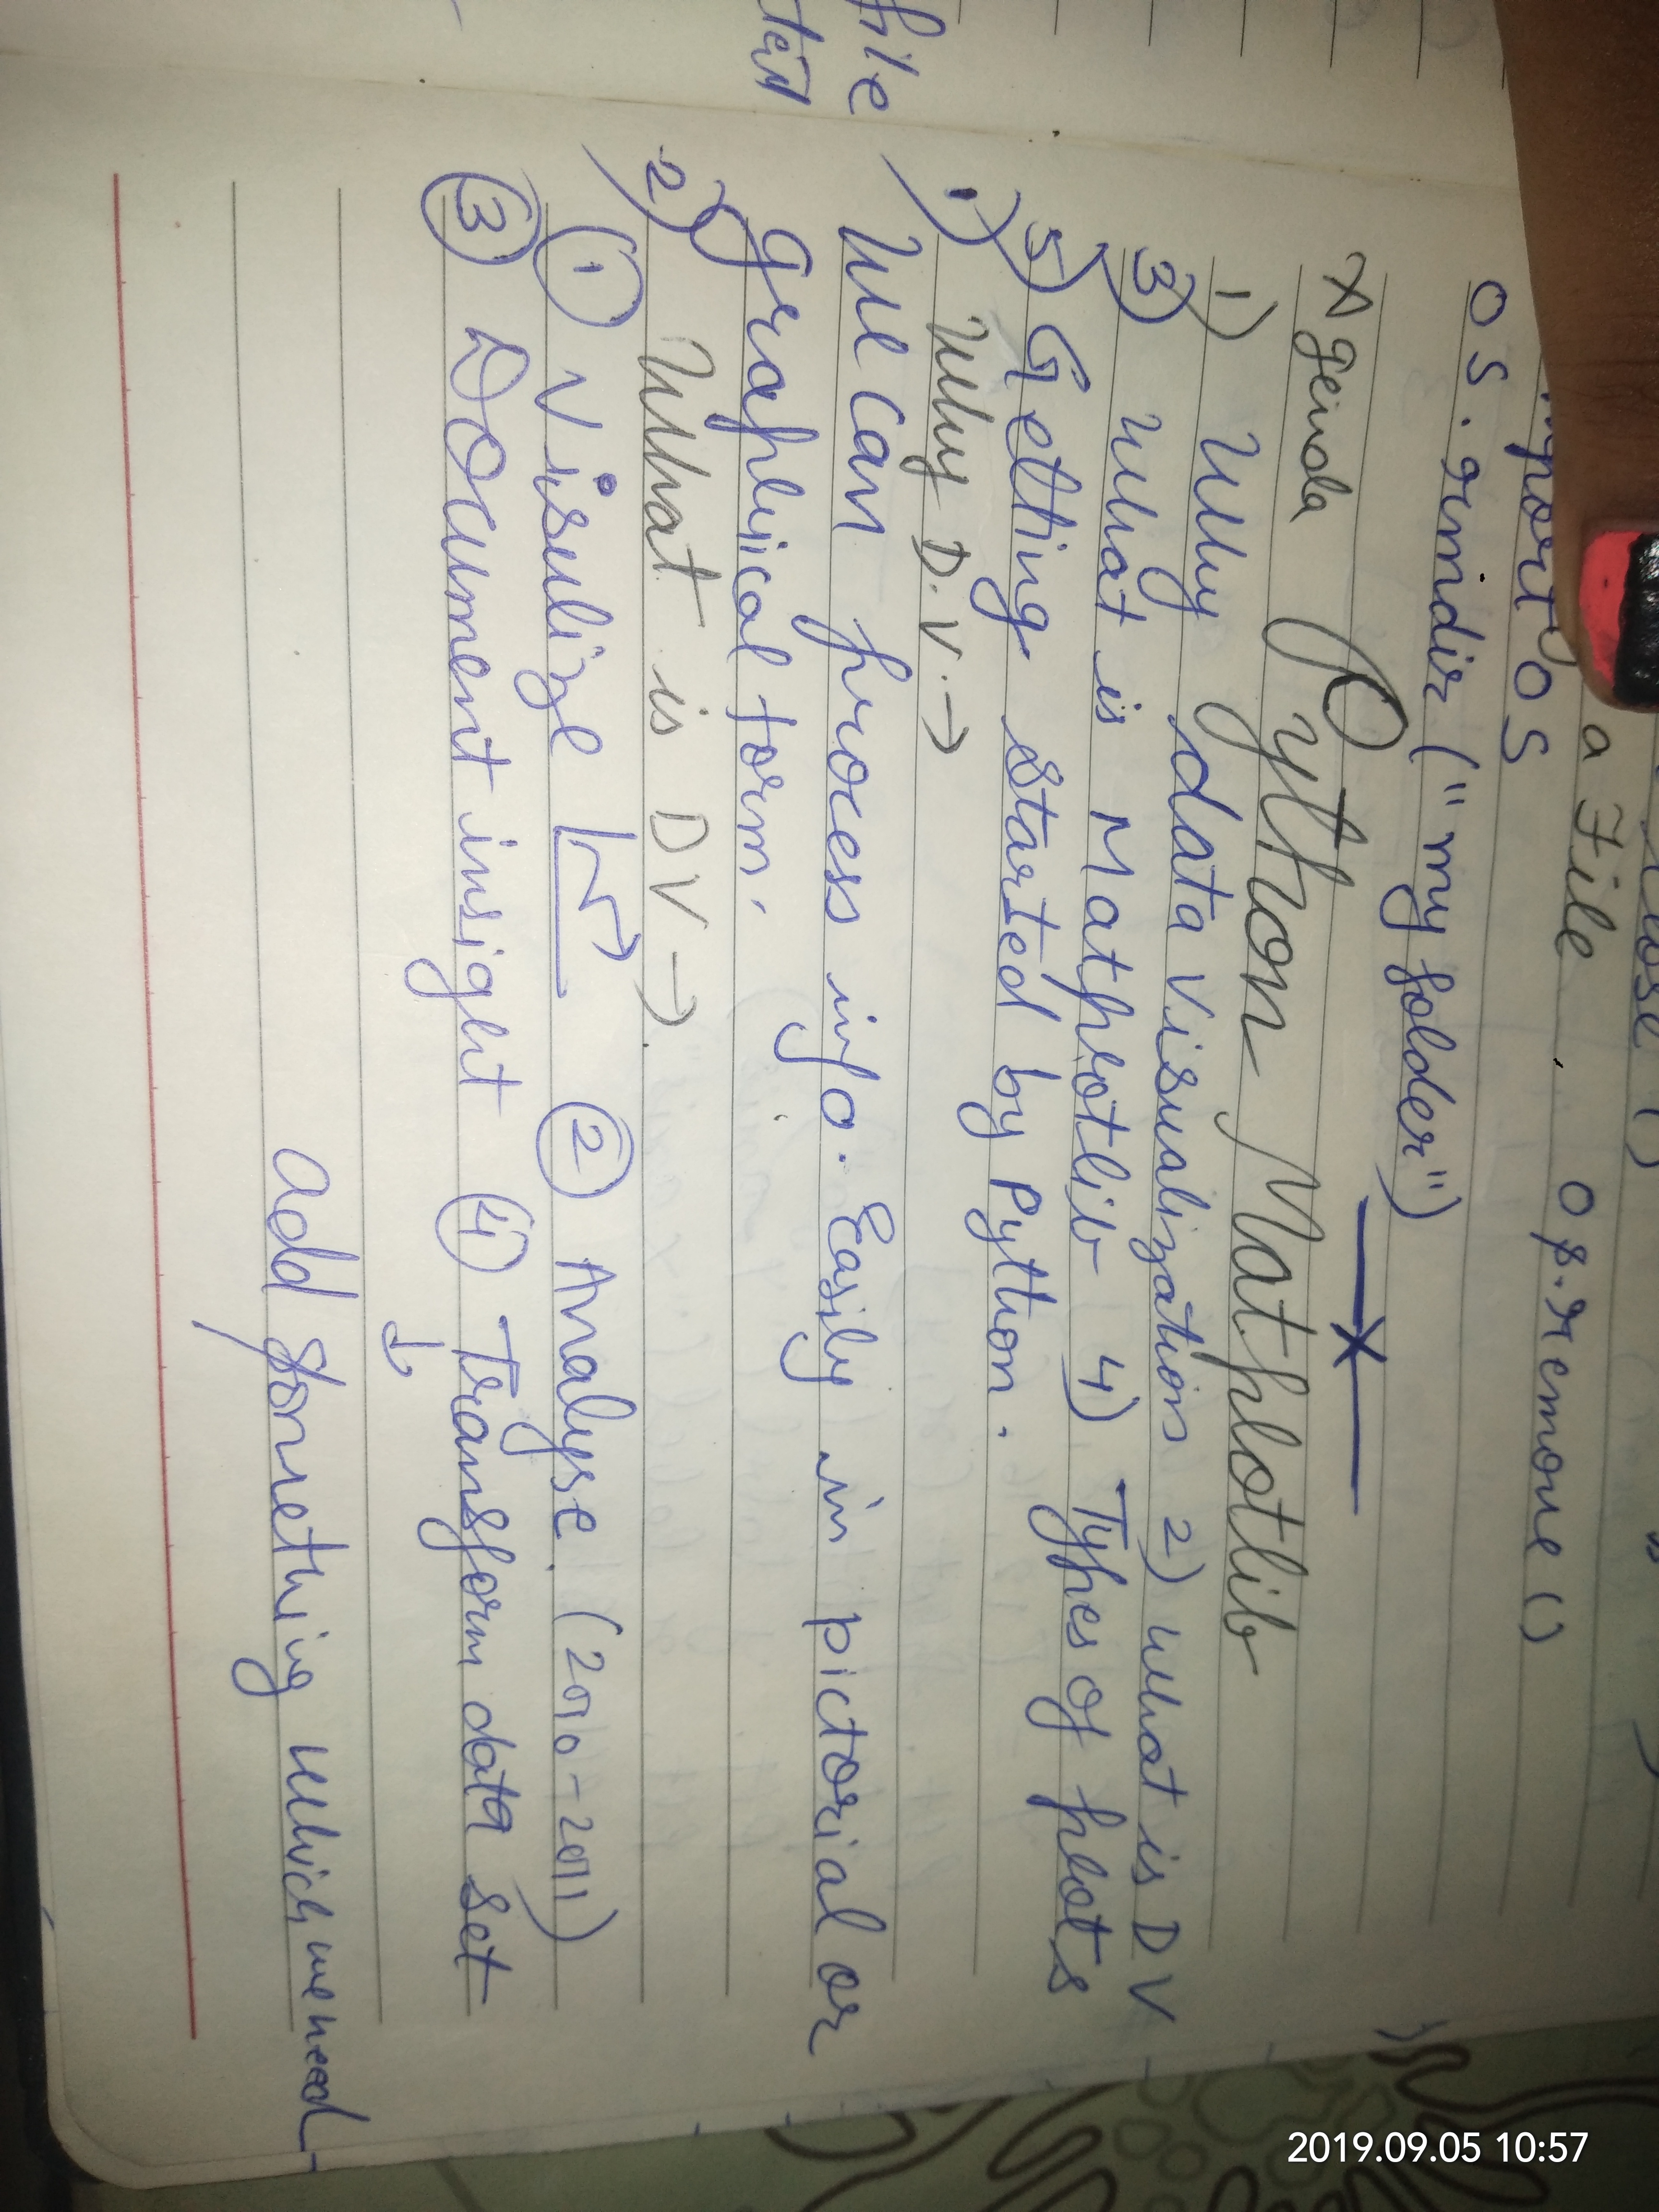 a File. Op.remove()
import OS
OS.rmdir("my folder")
X
Python Mathplotlib
Agenda
1) Why data visualization 2) what is DV
3) what is Mathplotlib 4) Types of plots
5) Getting started by Python.
1) Why D.V. →
We can process info. Easily in pictorial or
graphical form.
2) What is DV →
① Visulize ② Analyse. (2010-2011)
③ Document insight ④ Transform data set
↓
add something which we need
file
2019.09.05 10:57